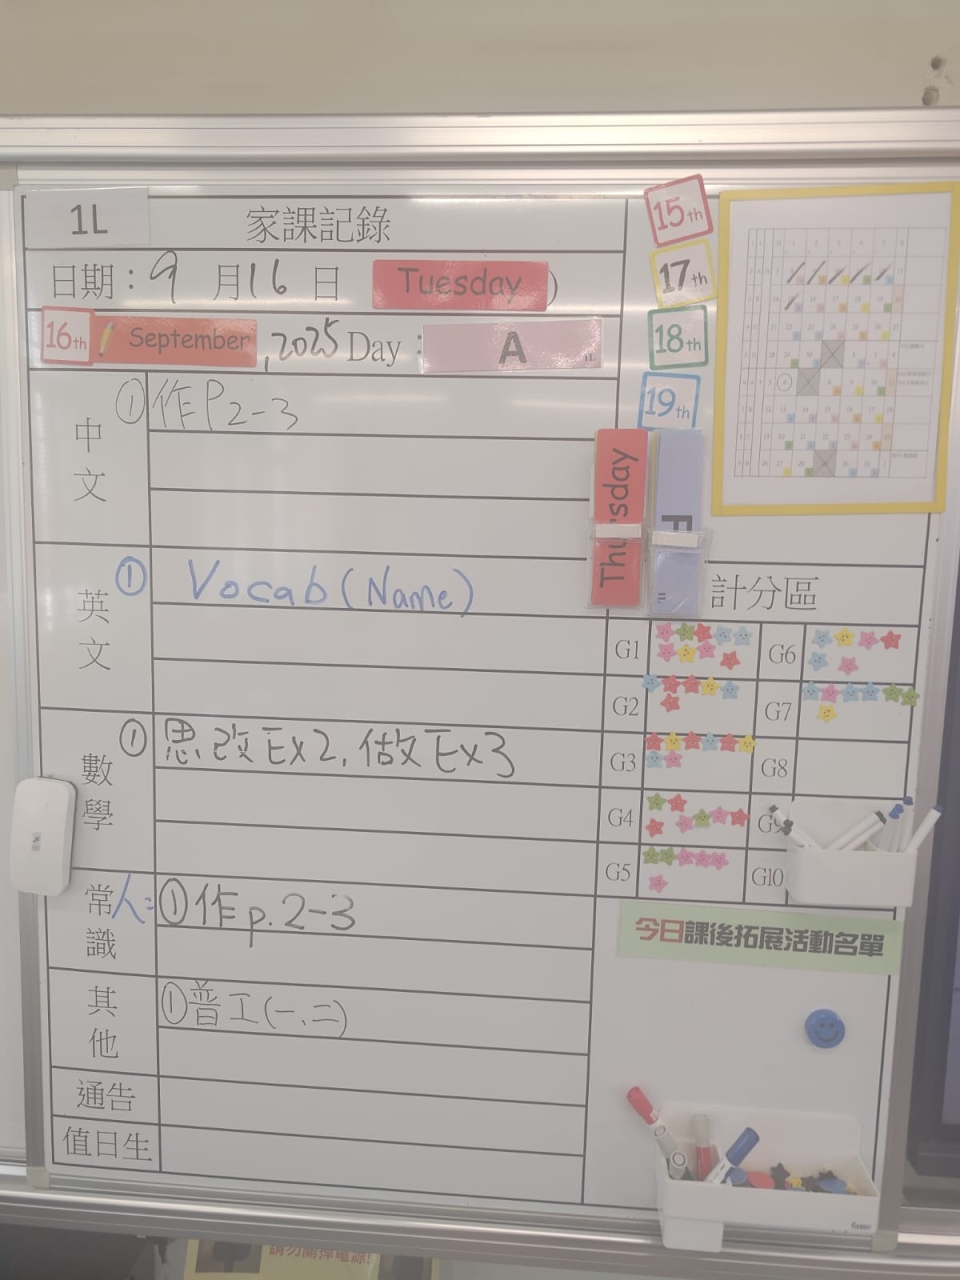 1L
家課記錄
日期：9月16日 Tuesday )
16th September, 2025 Day： A
中文 ①作P2-3
英文 ① Vocab (Name)
數學 ①思改Ex2, 做Ex3
常識 人: ①作p.2-3
其他 ①普工(一、二)
通告
值日生
15th
17th
18th
19th
Thursday
F
計分區
G1 G6
G2 G7
G3 G8
G4 G9
G5 G10
今日課後拓展活動名單
請勿關掉電源!